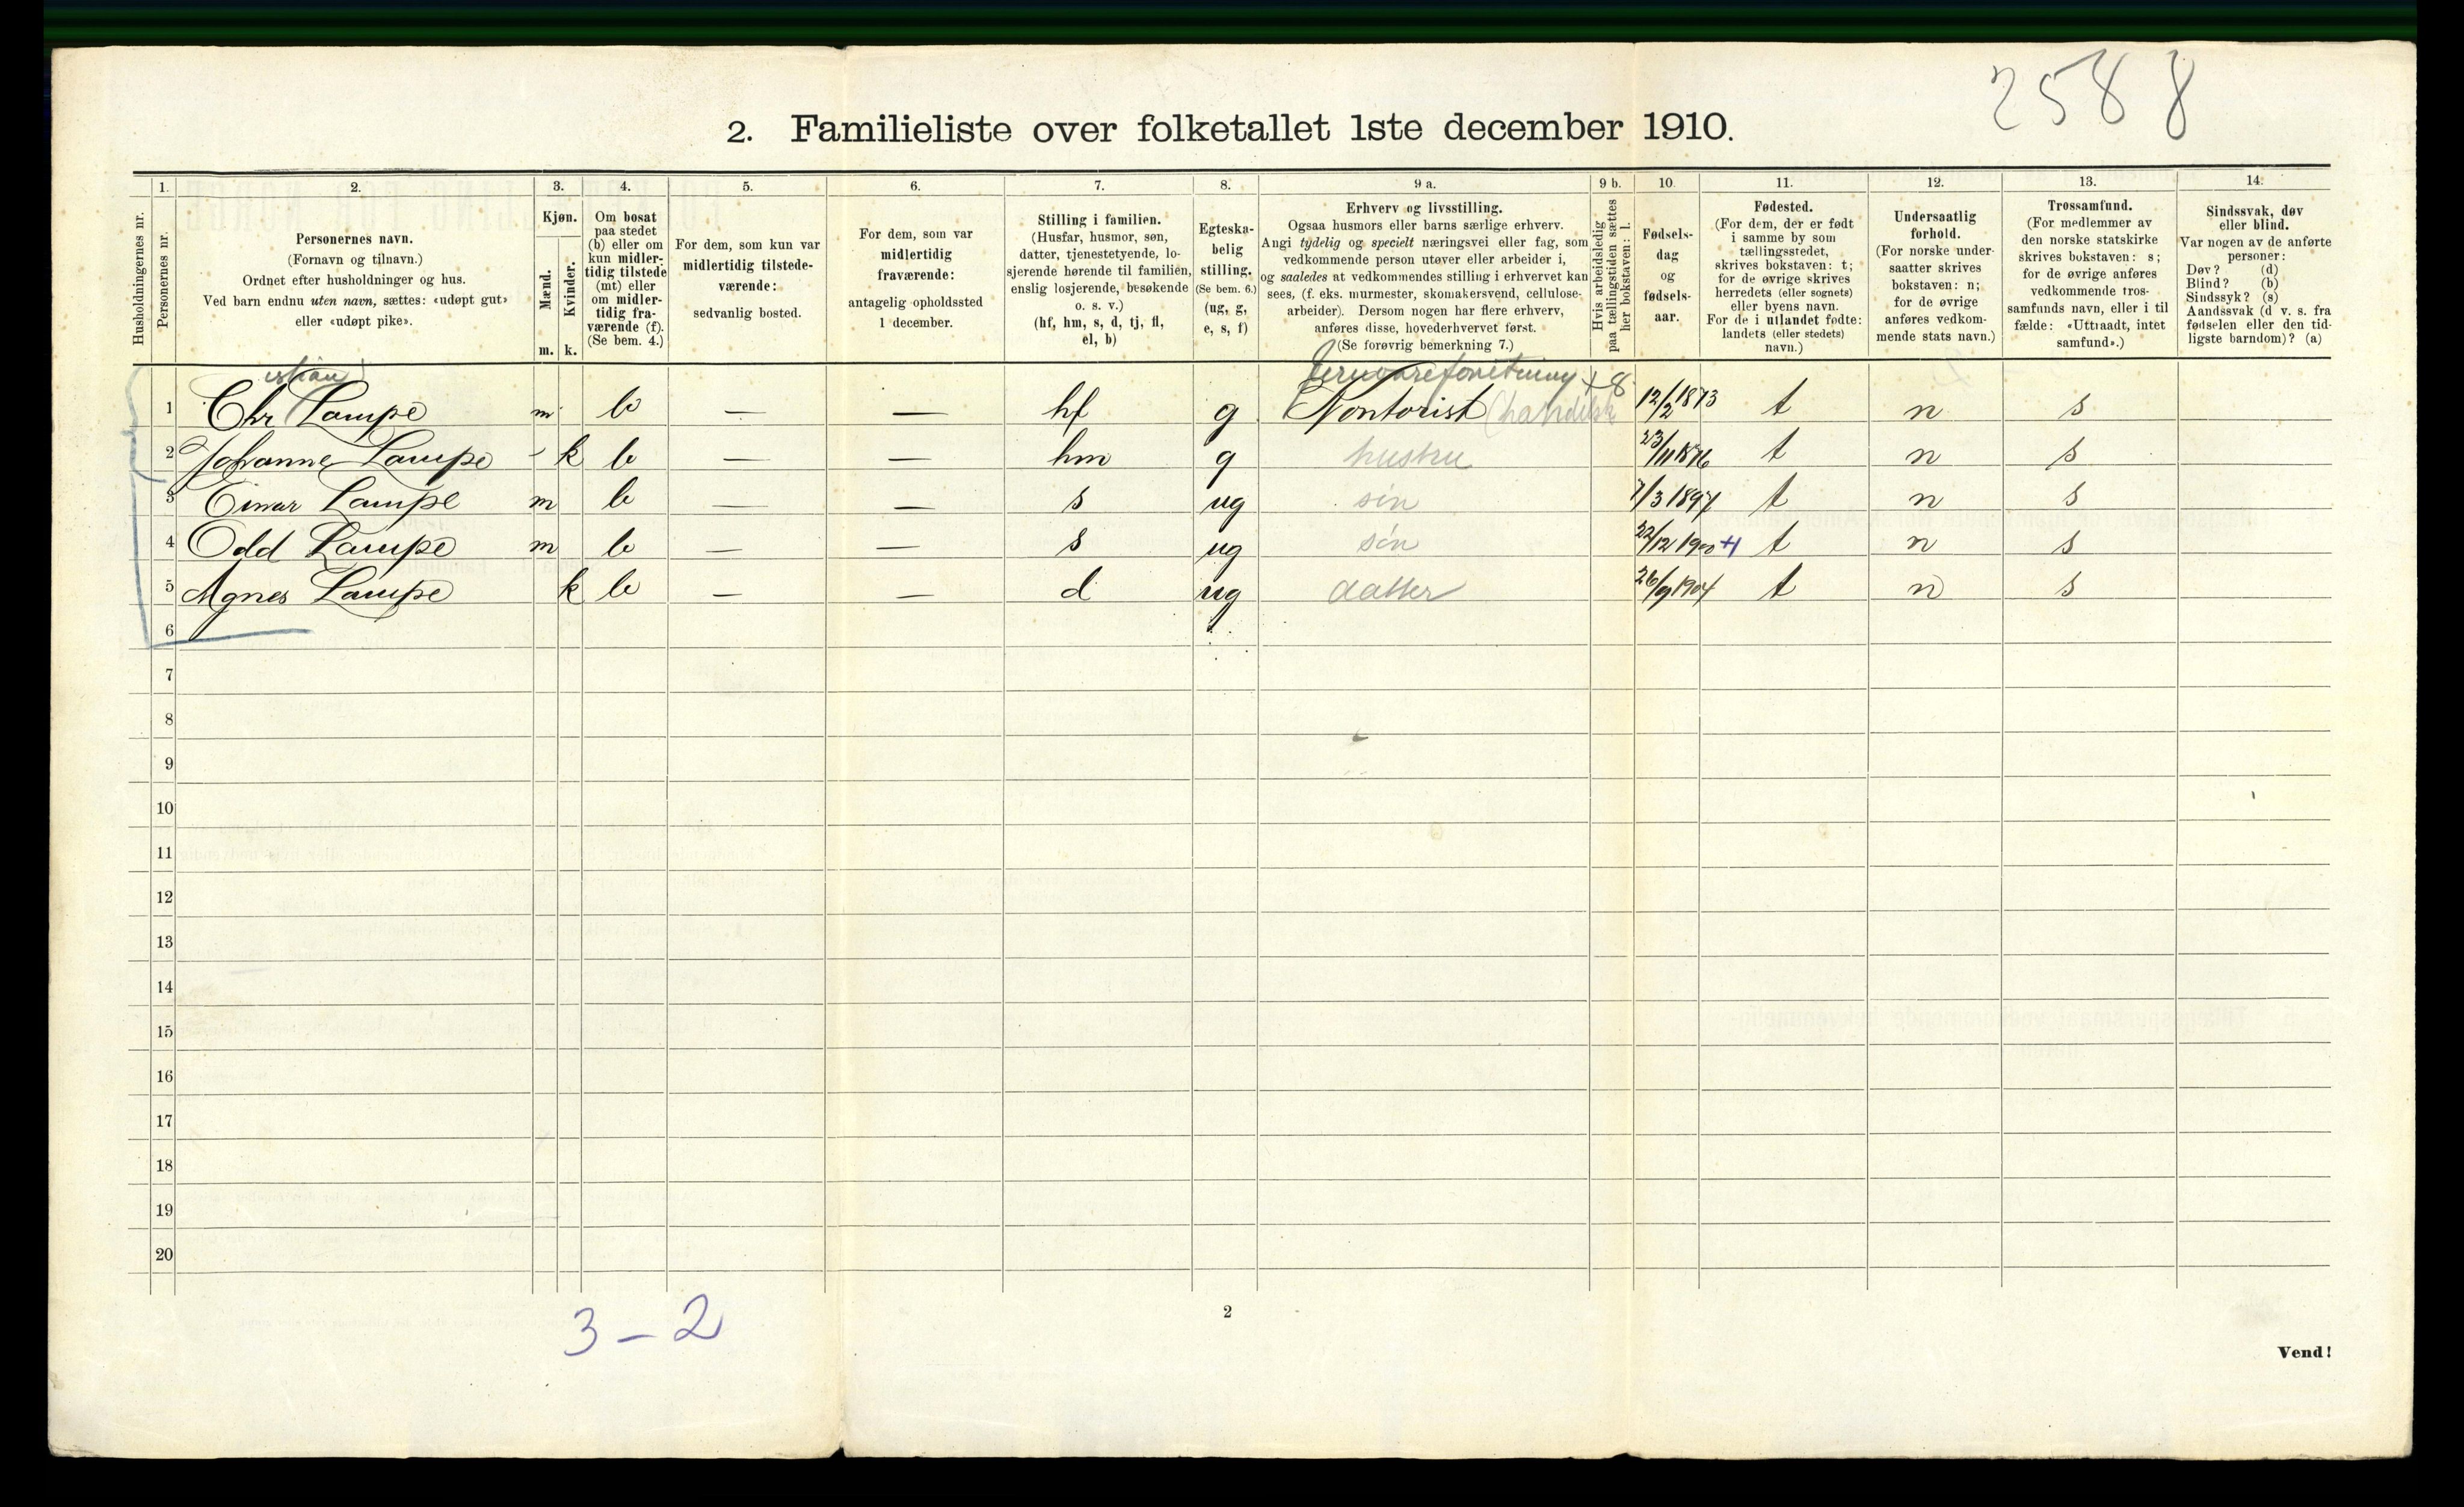 2588
2. Familieliste over folketallet 1ste december 1910.
Husholdningernes nr.
1.
Personernes nr.
2.
Personernes navn.
(Fornavn og tilnavn.)
Ordnet efter husholdninger og hus.
Ved barn endnu uten navn, sættes: «udøpt gut»
eller «udøpt pike».
3.
Kjøn.
Mænd.
Kvinder.
m. k.
4.
Om bosat
paa stedet
(b) eller om
kun midler-
tidig tilstede
(mt) eller
om midler-
tidig fra-
værende (f).
(Se bem. 4.)
5.
For dem, som kun var
midlertidig tilstede-
værende:
sedvanlig bosted.
6.
For dem, som var
midlertidig
fraværende:
antagelig opholdssted
1 december.
7.
Stilling i familien.
(Husfar, husmor, søn,
datter, tjenestetyende, lo-
sjerende hørende til familien,
enslig losjerende, besøkende
o. s. v.)
(hf, hm, s, d, tj, fl,
el, b)
8.
Egteska-
belig
stilling.
(Se bem. 6.)
(ug, g,
e, s, f)
9 a.
Erhverv og livsstilling.
Ogsaa husmors eller barns særlige erhverv.
Angi tydelig og specielt næringsvei eller fag, som
vedkommende person utøver eller arbeider i,
og saaledes at vedkommendes stilling i erhvervet kan
sees, (f. eks. murmester, skomakersvend, cellulose-
arbeider). Dersom nogen har flere erhverv,
anføres disse, hovederhvervet først.
(Se forøvrig bemerkning 7.)
9 b.
Hvis arbeidsledig
paa tællingstiden sættes
her bokstaven: l.
10.
Fødsels-
dag
og
fødsels-
aar.
11.
Fødested.
(For dem, der er født
i samme by som
tællingsstedet,
skrives bokstaven: t;
for de øvrige skrives
herredets (eller sognets)
eller byens navn.
For de i utlandet fødte:
landets (eller stedets)
navn.)
12.
Undersaatlig
forhold.
(For norske under-
saatter skrives
bokstaven: n;
for de øvrige
anføres vedkom-
mende stats navn.)
13.
Trossamfund.
(For medlemmer av
den norske statskirke
skrives bokstaven: s;
for de øvrige anføres
vedkommende tros-
samfunds navn, eller i til
fælde: «Uttraadt, intet
samfund».)
14.
Sindssvak, døv
eller blind.
Var nogen av de anførte
personer:
Døv? (d)
Blind? (b)
Sindssyk? (s)
Aandssvak (d v. s. fra
fødselen eller den tid-
ligste barndom)? (a)
istian Jernvareforretning +8
1 Chr Lampe m b — — hf g Kontorist 12/2 1873 t n s
2 Johanne Lampe - k b — — hm g hustru 23/11 1876 t n s
3 Einar Lampe m b — — s ug søn 7/3 1897 t n s
4 Odd Lampe m b — — s ug søn 22/12 1900 +1 t n s
5 Agnes Lampe k b — — d ug datter 26/9 1904 t n s
6
7
8
9
10
11
12
13
14
15
16
17
18
19
20
3 – 2
2
Vend!